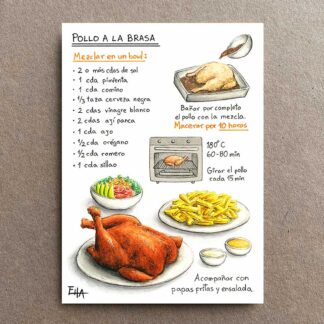 POLLO A LA BRASA
Mezclar en un bowl:
• 2 o más cdas de sal
• 1 cda pimienta
• 1 cda comino
• 1/3 taza cerveza negra
• 2 cdas vinagre blanco
• 2 cdas ají panca
• 1 cda ajo
• 1/2 cda orégano
• 1/2 cda romero
• 1 cda sillao
Bañar por completo
el pollo con la mezcla.
Macerar por 10 horas
180°C
60-80 min
Girar el pollo
cada 15 min
Acompañar con
papas fritas y ensalada.